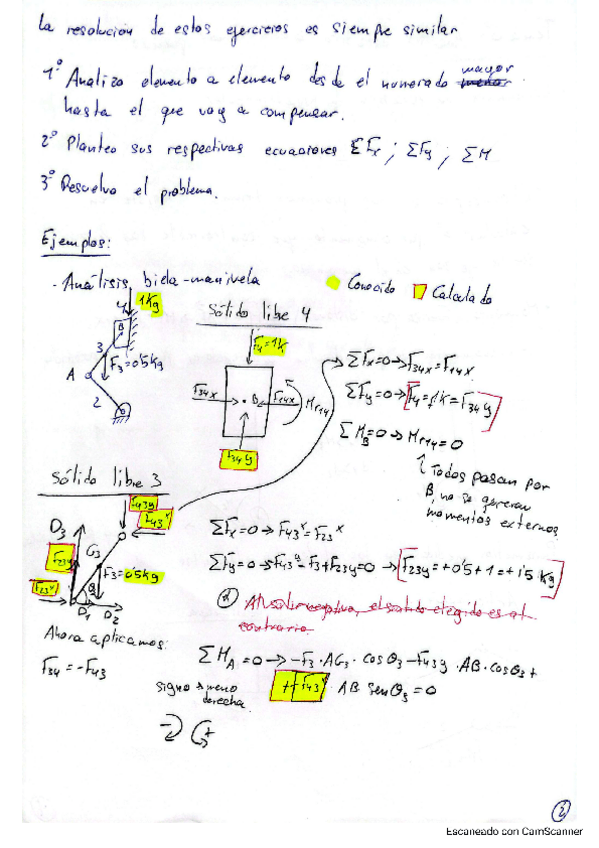 La resolución de estos ejercicios es siempre similar
1º Analizo elemento a elemento desde el numerado mayor
hasta el que voy a compensar.
2º Planteo sus respectivas ecuaciones ΣFx ; ΣFy ; ΣM
3º Resuelvo el problema.
Ejemplos:
- Análisis biela-manivela
Conocido
Calculado
1Kg
4
B
3
F3=0'5kg
A
2
Sólido libe 4
F4=1K
F34x
B
F14x
Mr14
F34y
ΣFx=0→F34x=F14x
ΣFy=0→F4=1K=F34y
ΣMB=0→Mr14=0
Todos pasan por
B, no se generan
momentos externos
Sólido libre 3
F43y
F43x
D3
G3
F23y
F3=0'5kg
F23x
D1
D2
ΣFx=0→F43x=F23x
ΣFy=0→F43y-F3+F23y=0→F23y=+0'5+1=+1'5Kg
Ahora aplicamos:
F34=-F43
ΣMA=0→-F3·AG3·cosθ3-F43y·AB·cosθ3+
+F43x·AB senθ3=0
signo → mano
derecha
2
Escaneado con CamScanner